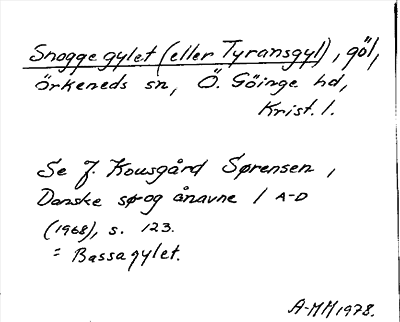 Snogge gylet (eller Tyransgyl), göl,
örkeneds sn, Ö. Göinge hd,
Krist. l.
Se J. Kousgård Sørensen,
Danske sø- og ånavne 1 A-D
(1968), s. 123.
= Bassagylet.
A-MM 1978.